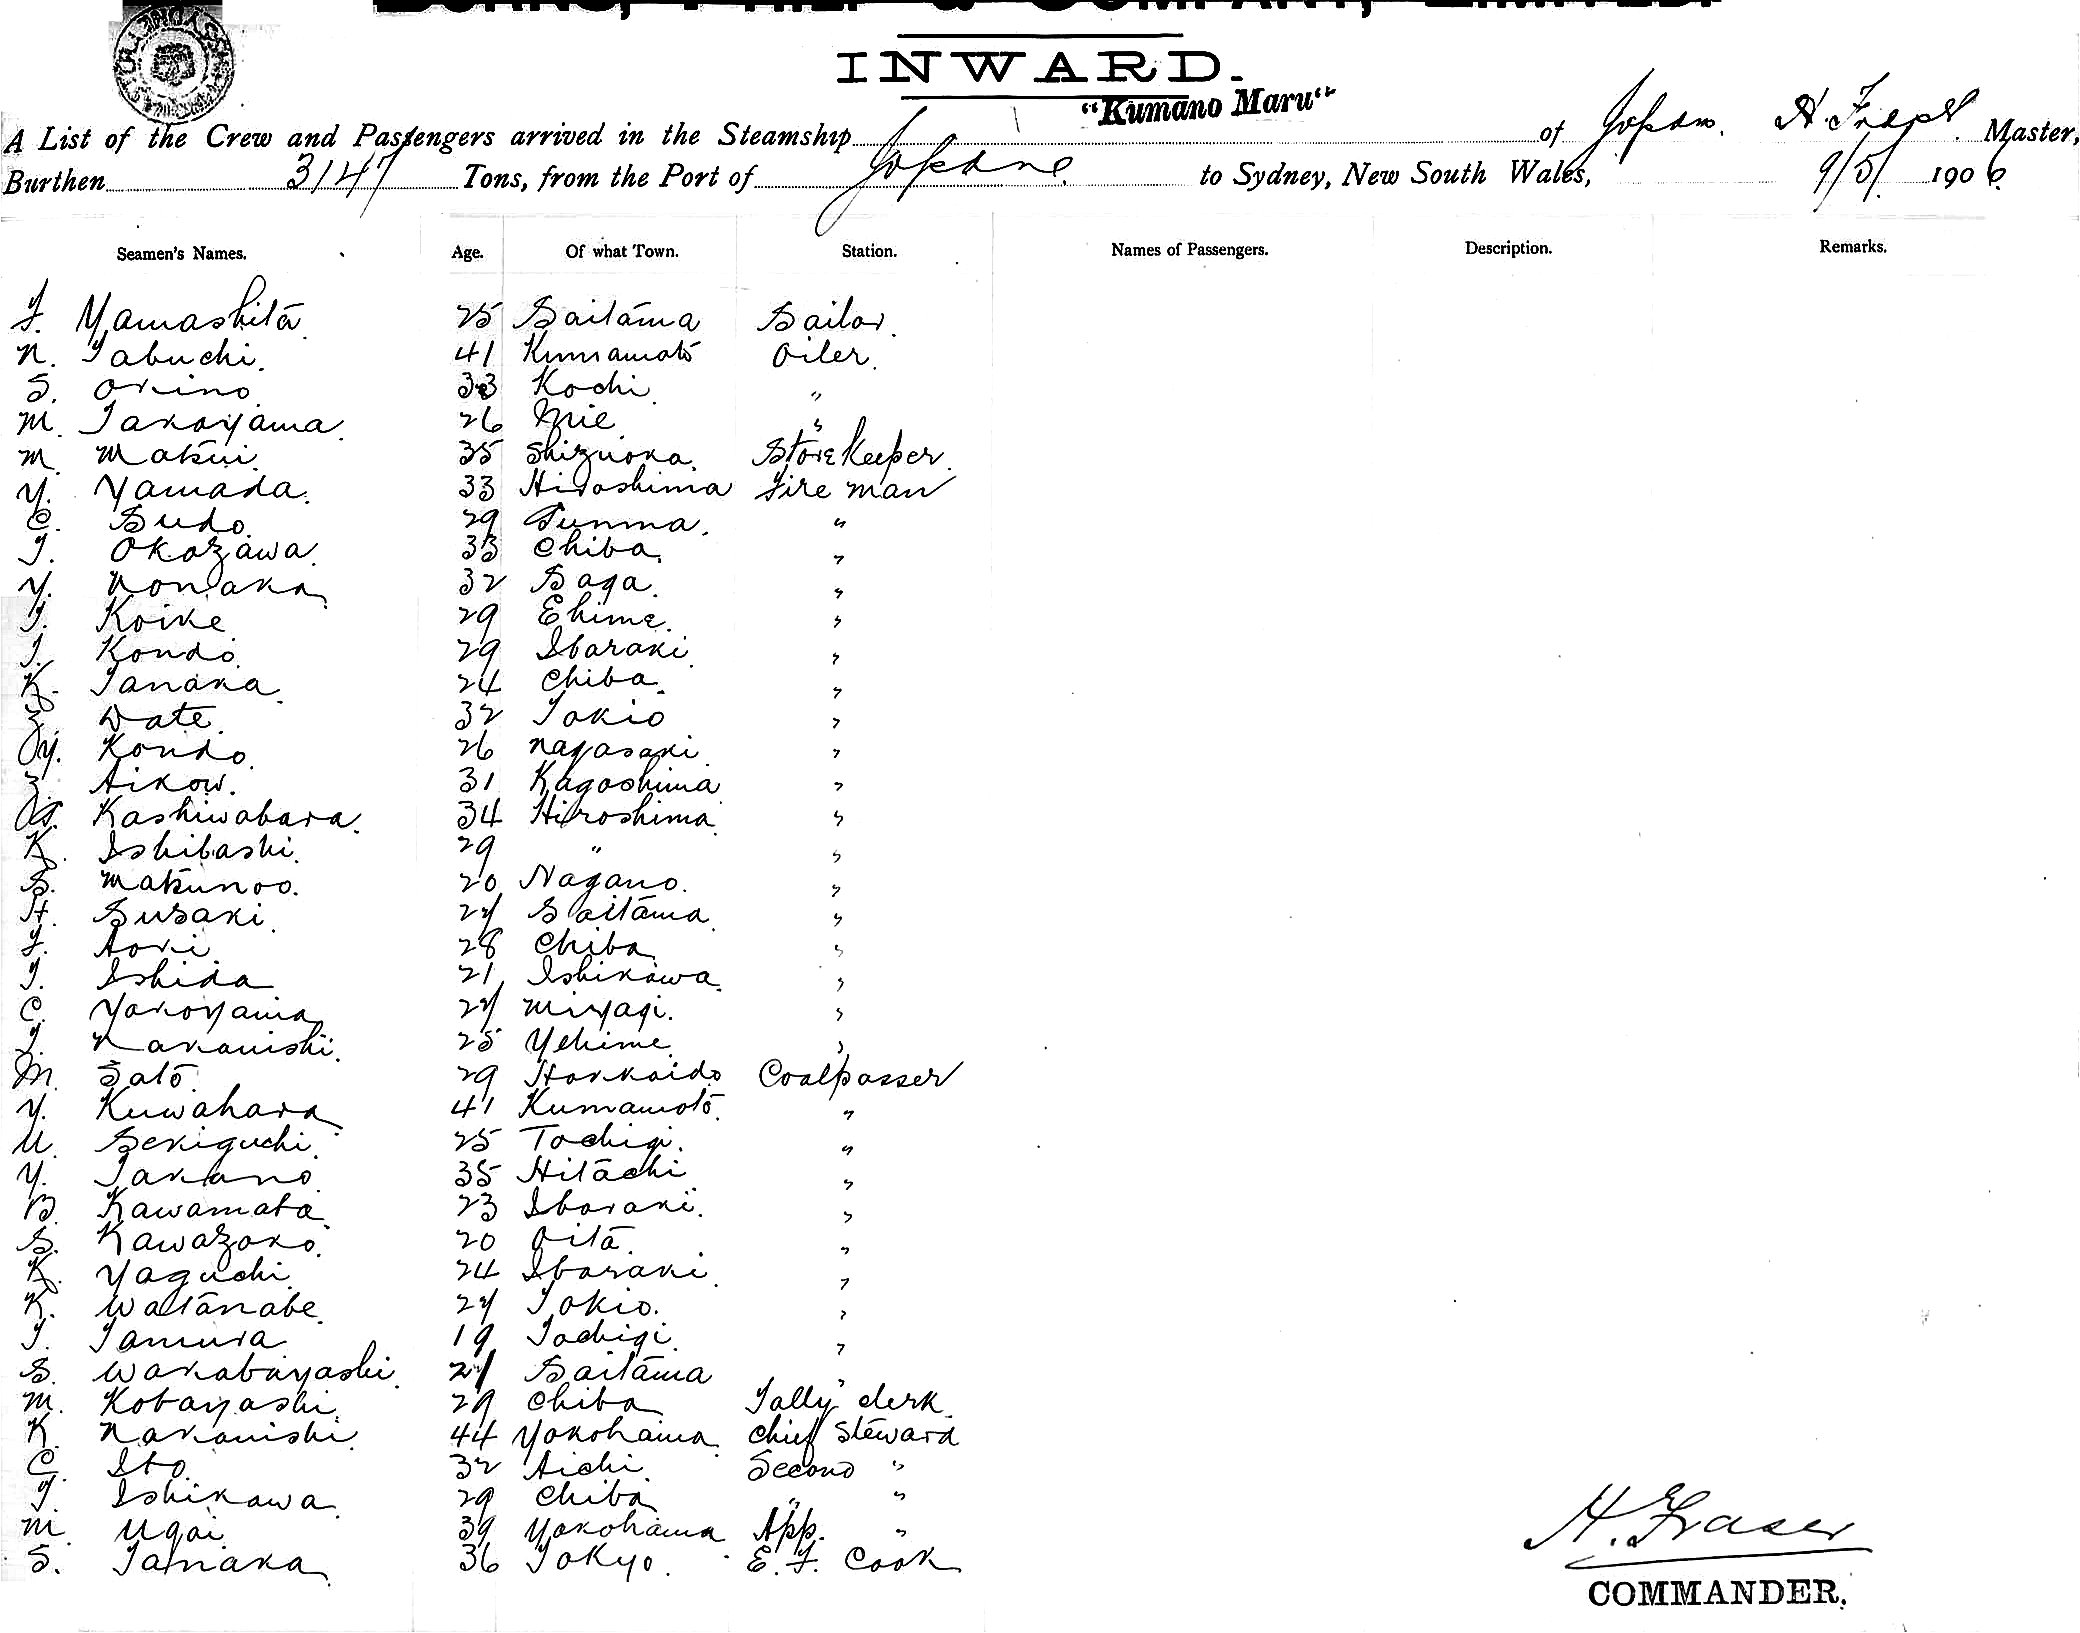 BURNS, PHILP & COMPANY, LIMITED.
INWARD.
"Kumano Maru"
A List of the Crew and Passengers arrived in the Steamship of Japan. H. Fraser Master,
Burthen 3147 Tons, from the Port of Japan. to Sydney, New South Wales, 9/5/ 1906
Seamen's Names. Age. Of what Town. Station. Names of Passengers. Description. Remarks.
Yamashita 25 Saitama Sailor.
N. Tabuchi. 41 Kumamoto Oiler.
S. Okino. 33 Kochi. "
M. Takayama. 26 Mie "
M. Matsui. 35 Shizuoka. Store Keeper.
Y. Yamada. 33 Hiroshima Fire man
C. Sudo. 29 Gunma. "
T. Okazawa. 33 Chiba. "
Y. Nonaka 32 Saga. "
T. Koike 29 Ehime. "
T. Kondo. 29 Ibaraki. "
K. Tanaka. 24 Chiba. "
Z. Date. 32 Tokio "
Y. Kondo. 26 Nagasaki. "
Z. Aikow. 31 Kagoshima "
Kashiwabara. 34 Hiroshima. "
K. Ishibashi. 29 " "
S. Matsunoo. 20 Nagano. "
H. Susaki. 27 Saitama. "
Aoki. 28 Chiba "
T. Ishida 21 Ishikawa. "
C. Yokoyama 27 Miyagi. "
T. Nakanishi. 25 Yehime. "
M. Sato. 29 Hokkaido Coalpasser
Y. Kuwahara 41 Kumamoto. "
U. Sekiguchi. 25 Tochigi. "
Y. Takano. 35 Hitachi "
B. Kawamata. 23 Ibaraki. "
S. Kawazoko. 20 Oita. "
K. Yaguchi. 24 Ibaraki. "
K. Watanabe. 27 Tokio. "
T. Tamura 19 Tochigi. "
S. Wakabayashi. 27 Saitama "
M. Kobayashi. 29 Chiba Tally clerk.
K. Nakanishi. 44 Yokohama. Chief Steward
C. Ito. 32 Aichi. Second "
T. Ishikawa. 29 Chiba " "
M. Ugai. 39 Yokohama App. "
S. Tanaka. 36 Tokyo. E. F. Cook
H. Fraser
COMMANDER.